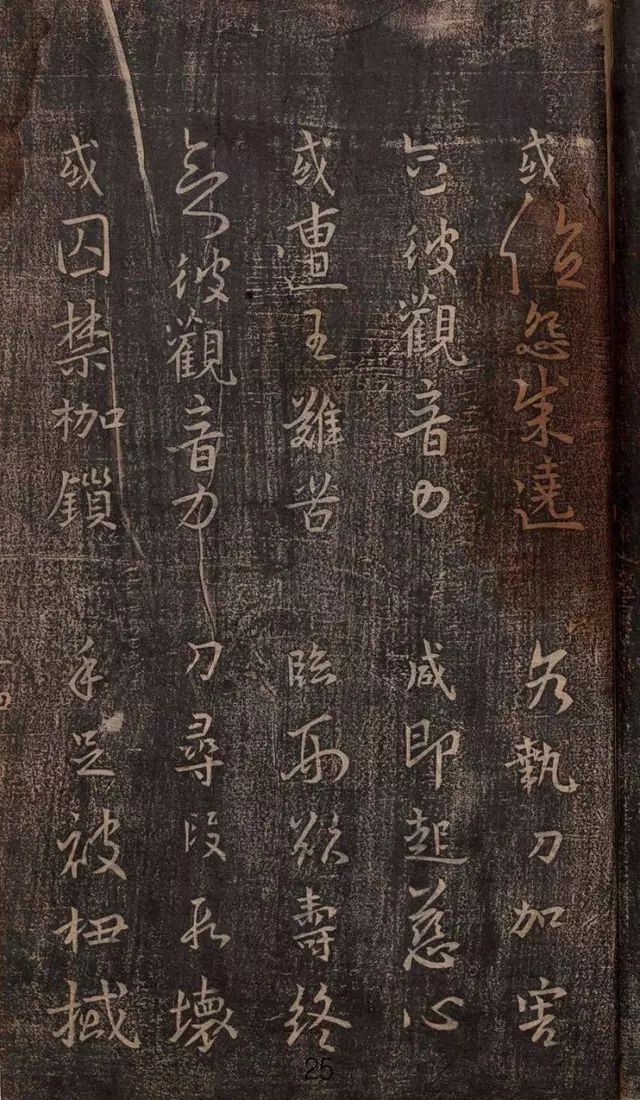 或值怨賊遶 各執刀加害
念彼觀音力 咸即起慈心
或遭王難苦 臨刑欲壽終
念彼觀音力 刀尋段段壞
或囚禁枷鎖 手足被杻械
25